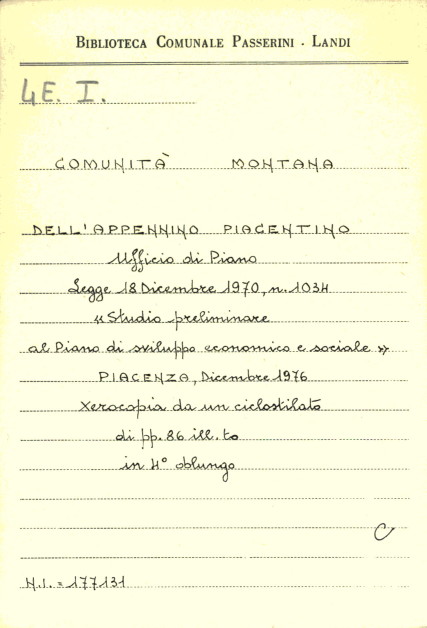 BIBLIOTECA COMUNALE PASSERINI - LANDI
4E. I.
COMUNITÀ MONTANA
DELL'APPENNINO PIACENTINO
Ufficio di Piano
Legge 18 Dicembre 1970, n. 1034
«Studio preliminare
al Piano di sviluppo economico e sociale»
PIACENZA, Dicembre 1976
Xerocopia da un ciclostilato
di pp. 86 ill.to
in 4° oblungo
C
N.I. = 177131